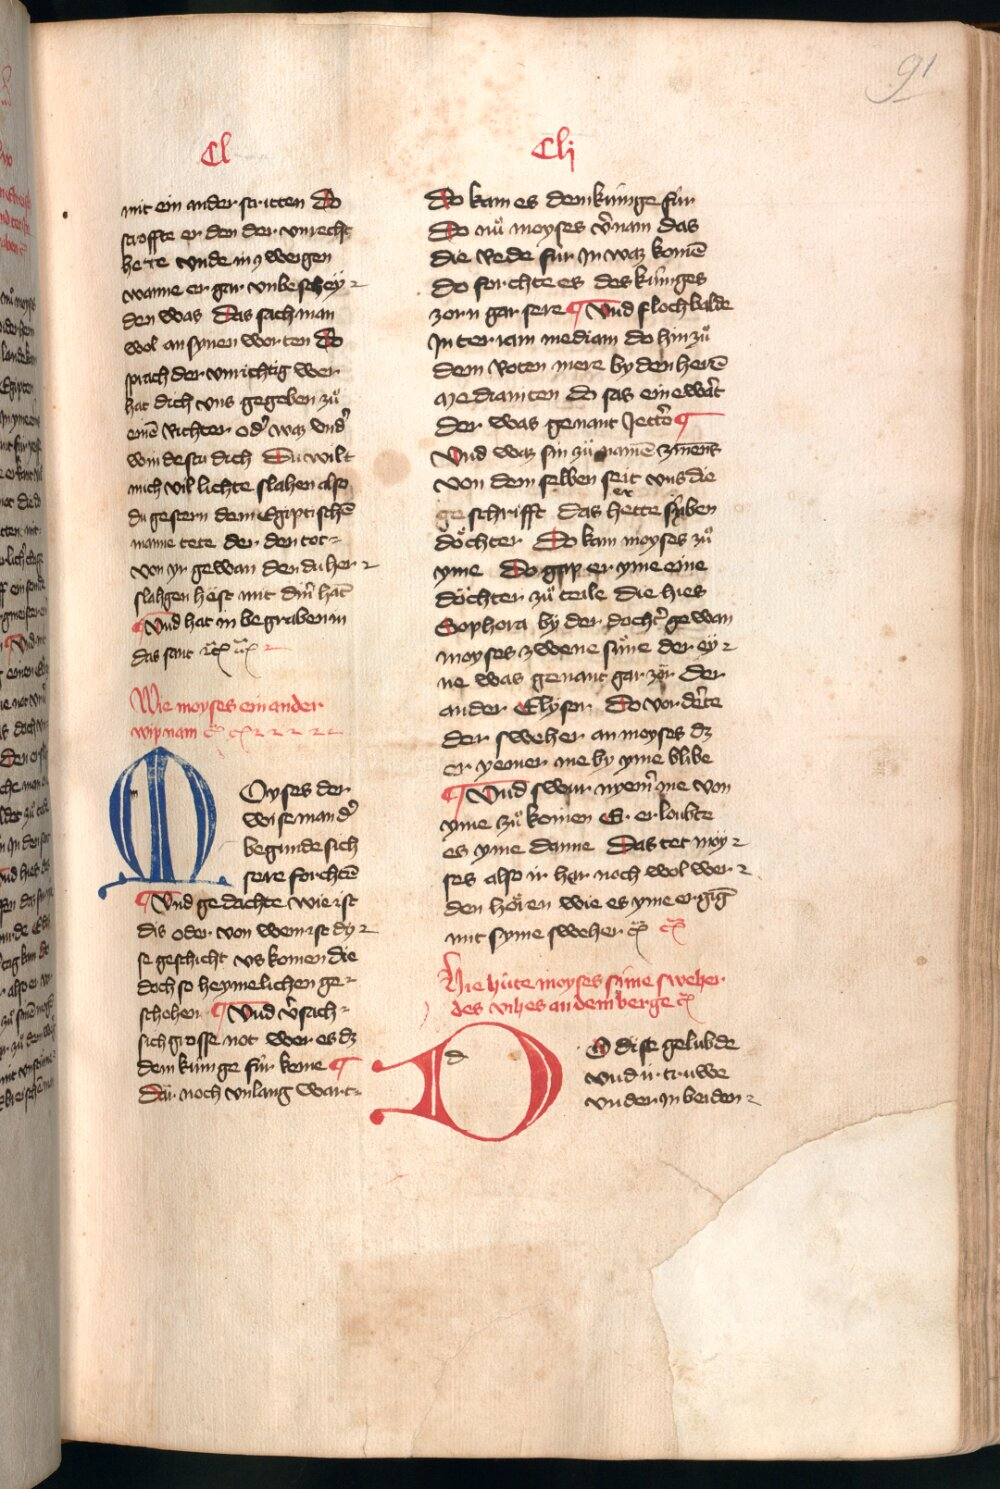 91
Cl
mit ein ander stritten Do
stroffte er den der vnrecht
hette vnde in ꝯ weigen
wanne er gar vnbeschey
den was Das sach man
wol an synen worten Do
sprach der vnrichtig wer
hat dich vns gegeben zuͦ
einē Richter od' waz vnd'
windestu dich Du wilt
mich vil lichte slahen also
du gestern dem Egiptischē
manne tete der den tot
von yr gewan den du her
slahgen hest mit din' hāt
¶ Vnd hat in begraben in
das sant
Wie moyses ein ander
wip nam
Moyses der
wise man d'
begunde sich
sere forchtē
¶ Vnd gedachte wie ist
dis oder von wem ist dy
se geschicht vs komen die
doch so heymelichen ge
schehen ¶ Vnd v'sach
sich grosse not wer es dz
dem kunige fuͤr keme ¶
Dar noch vnlang wart
Clj
Do kam es dem kunige fuͤr
Do nuͦ moyses v'nam das
die Rede fuͤr In waz komē
do forchte es des kuniges
zorn gar sere ¶ Vnd floch balde
In terram mediam do hin zuͦ
dem Roten mere by den herē
Medianiten do sas eine wat
der was genant Jettro ¶
Vnd waz sin zuͦ namē
von dem selben seit vns die
geschrifft das er hette syben
doͤchter Do kam moyses zuͦ
yme Do gap er yme eine
doͤchter zuͦ teile die hies
Sophora by der docht' gewan
moyses zwene suͤne der ey
ne was genant gar zon der
ander Elyser Do vordete
der sweher an moyses dz
er yemer me by yme blibe
¶ Vnd swur nyem' me von
yme zuͦ komen Es erloubte
es yme danne Das tet moy
ses also ir har noch wol wer
den hoͤren wie es yme erging
mit syme sweher
Hie huͤte moyses sime sweher
des vihes an dem berge
Do dise geluͤbde
vnd ir truwe
vnder In beiden